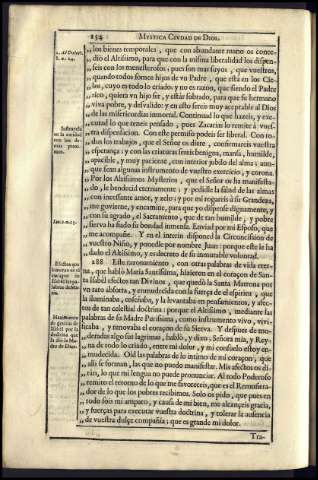 254 MYSTICA CIVDAD DE DIOS.
los bienes temporales, que con abundante mano os conce-
dió el Altissimo, para que con la misma liberalidad los dispen-
seis con los menesterosos; pues son mas suyos, que vuestros,
quando todos somos hijos de vn Padre, que està en los Cie-
los, cuyo es todo lo criado: y no es razon, que siendo el Padre
rico, quiera vn hijo ser, y estàr sobrado, para que su hermano
viva pobre, y desvalido: y en esto sereis muy aceptable al Dios
de las misericordias inmortal. Continuad lo que hazeis, y exe-
cutad lo que teneis pensado, pues Zacarias lo remite à vues-
tra disposicion. Con este permiso podeis ser liberal. Con to-
dos los trabajos, que el Señor os diere, confirmareis vuestra
esperança: y con las criaturas sereis benigna, mansa, humilde,
apacible, y muy paciente, con interior jubilo del alma; aun-
que sean algunas instrumento de vuestro exercicio, y corona.
Por los Altissimos Mysterios, que el Señor os ha manifesta-
do, le bendecid eternamente; y pedidle la salud de las almas
con incessante amor, y zelo; y por mi rogareis à su Grandeza,
me govierne, y encamine, para que yo dispense dignamente, y
con su agrado, el Sacramento, que de tan humilde, y pobre
sierva ha fiado su bondad inmensa. Enviad por mi Esposo, que
me acompañe. Y en el interin disponed la Circuncission de
vuestro Niño, y ponedle por nombre Juan: porque este le ha
dado el Altissimo, y es decreto de su inmutable voluntad.
288 Este razonamiento, con otras palabras de vida eter-
na, que habló MARIA Santissima, hizieron en el coraçon de San-
ta Isabèl efectos tan Divinos, que quedó la Santa Matrona por
vn rato absorta, y enmudecida con la fuerça de el espiritu, que
la iluminaba, enseñaba, y la levantaba en pensamientos, y afec-
tos de tan celestial doctrina: porque el Altissimo, mediante las
palabras de su Madre Purissima, como instrumento vivo, vivi-
ficaba, y renovaba el coraçon de su Sierva. Y despues de mo-
deradas algo sus lagrimas, habló, y dixo: Señora mia, y Rey-
na de todo lo criado, entre mi dolor, y mi consuelo estoy en-
mudecida. Oid las palabras de lo intimo de mi coraçon, que
allì se forman, las que no puedo manifestar. Mis afectos os di-
ràn, lo que mi lengua no puede pronunciar. Al todo Poderoso
remito el retorno de lo que me favoreceis, que es el Remunera-
dor de lo que los pobres recibimos. Solo os pido, que pues en
todo sois mi amparo, y causa de mi bien, me alcanceis gracia,
y fuerças para executar vuestra doctrina, y tolerar la ausencia
de vuestra dulçe compañia; que es grande mi dolor.
Tra-